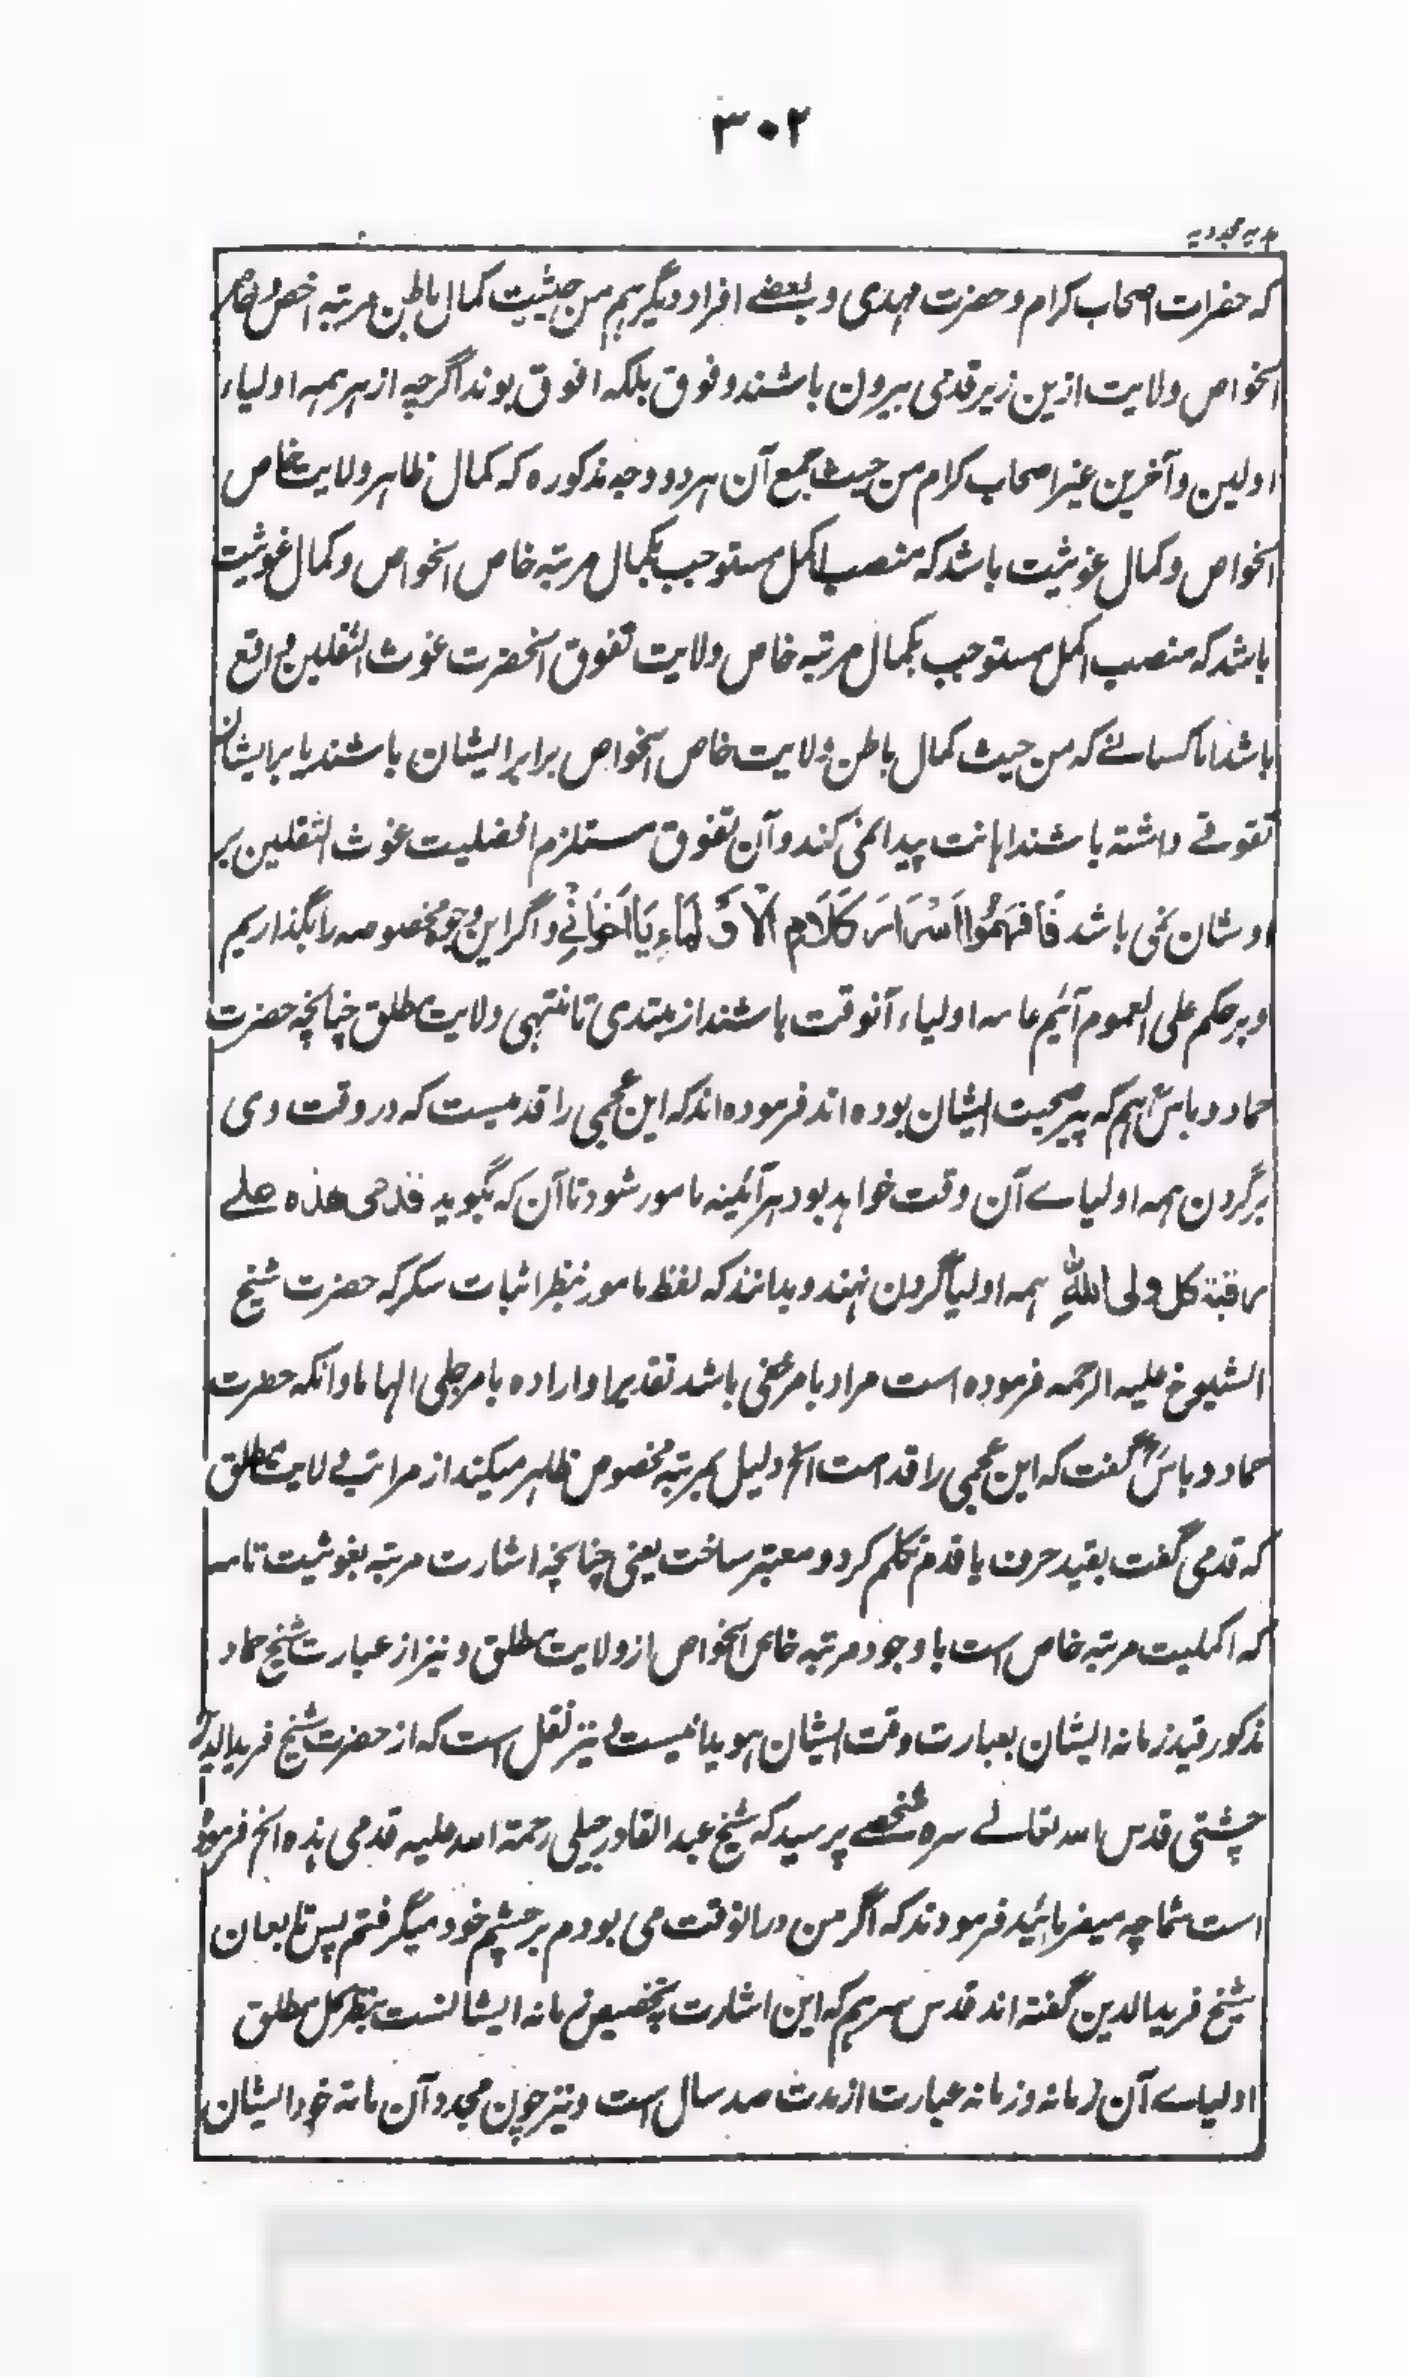 ۳۰۲
ہدیہ مجددیہ
کہ حضرات اصحاب کرام و حضرت مہدی و بعضے افراد دیگر ہم من حیثیت کمال باطن مرتبہ اخص خاص
الخواص ولایت ازین زیر قدمی بیرون باشند و فوق بلکہ افوق بوند اگرچہ از ہر ہمہ اولیاء
اولین و آخرین غیر اصحاب کرام من حیث جمع آن ہر دو وجہ مذکورہ کہ کمال ظاہر ولایت خاص
الخواص و کمال غوثیت باشد کہ منصب اکمل مستوجب بکمال مرتبہ خاص الخواص و کمال غوثیت
باشد کہ منصب اکمل مستوجب بکمال مرتبہ خاص ولایت تفوق آنحضرت غوث الثقلین واقع
باشد اما کسانے کہ من حیث کمال باطن ولایت خاص الخواص برابر ایشان باشند یا بر ایشان
تفوقے داشتہ باشند اہانت پیدا نمی کند و آن تفوق مستلزم افضلیت غوث الثقلین بر
اوشان نمی باشد فَافْهَمُوا اَسْرَارَ كَلَامِ الْاَوْلِيَاءِ يَا اَخَوَانِي و اگر این وجوہ مخصوصہ را بگذاریم
و بر حکم علی العموم آئیم عامہ اولیاء آنوقت باشند از مبتدی تا منتہی ولایت مطلق چنانچہ حضرت
حماد دباس ہم کہ پیر صحبت ایشان بودہ اند فرمودہ اند کہ این عجمی را قدمیست کہ در وقت وی
بر گردن ہمہ اولیاے آن وقت خواہد بود ہر آئینہ مامور شود تا آن کہ بگوید قدمی هذه علے
رقبة کل ولی اللّٰہِ ہمہ اولیا گردن نہند و بدانند کہ لفظ مامور بنظر اثبات سکر کہ حضرت شیخ
الشیوخ علیہ الرحمہ فرمودہ است مراد بامر خفی باشد تقدیرا و ارادہ یا مر جلی الہاما و آنکہ حضرت
حماد دباس گفت کہ این عجمی را قدمے است الخ دلیل بمرتبہ مخصوص ظاہر میکند از مراتب ولایت مطلق
کہ قدمی گفت بقید حرف یا قدم تکلم کرد و معتبر ساخت یعنی چنانچہ اشارت مرتبہ بغوثیت تامہ
کہ اکملیت مرتبہ خاص است با وجود مرتبہ خاص الخواص از ولایت مطلق و نیز از عبارت شیخ حماد
مذکور قید زمانہ ایشان بعبارت وقت ایشان ہویدا نیست و نیز نقل است کہ از حضرت شیخ فرید الدین
چشتی قدس اللہ تعالے سرہ شخصے پرسید کہ شیخ عبد القادر جیلی رحمة اللہ علیہ قدمی ہذہ الخ فرمودہ
است شما چہ میفرمائید فرمودند کہ اگر من در آنوقت می بودم بر چشم خود میگرفتم پس تابعان
شیخ فرید الدین گفتہ اند قدس سرہم کہ این اشارت بتخصیص زمانہ ایشانست بنظر کل مطلق
اولیاے آن زمانہ و زمانہ عبارت از مدت صد سال است و نیز چون مجدد آن مانہ خود ایشان